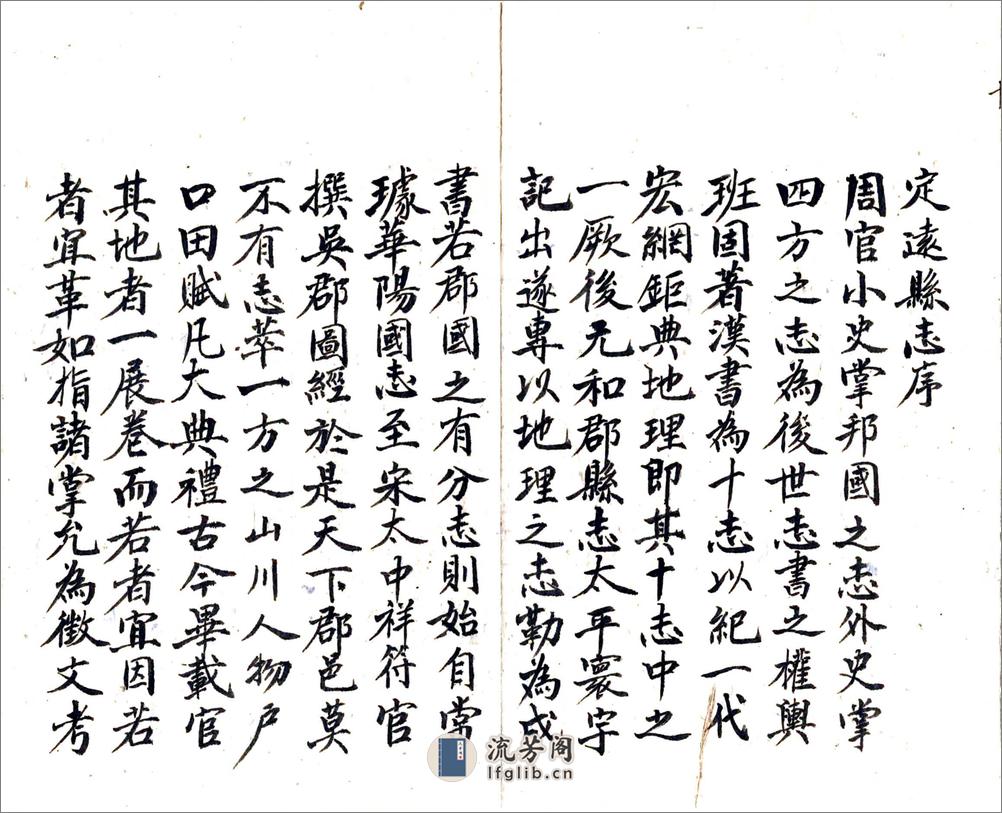 定遠縣志序
周官小史掌邦國之志外史掌
四方之志為後世志書之權輿
班固著漢書為十志以紀一代
宏網鉅典地理即其十志中之
一厥後元和郡縣志太平寰宇
記出遂專以地理之志勒為成
書若郡國之有分志則始自常
璩華陽國志至宋太中祥符官
撰吳郡圖經於是天下郡邑莫
不有志萃一方之山川人物户
口田賦凡大典禮古今畢載官
其地者一展卷而若者宜因若
者宜革如指諸掌允為徵文考
流芳阁
lfglib.cn